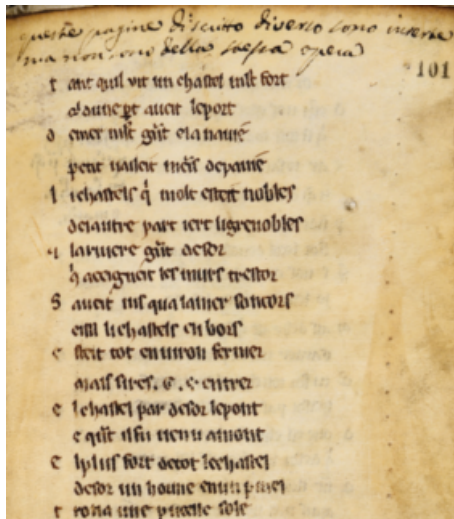 queste pagine di scritto diverso sono inserte
ma non sono della stessa opera
101
t ant quil vit un chastel mlt fort
dune pt aveit le port
d emer mlt gnt e la navie
petit vaileit
l i chastels q molt esteit nobles
de lautre part iert li grenobles
la riviere gnt desoz
q acceigneit les murs trestoz
S aveit ius qua la mer son cors
eissi li chastels en bors
e steit tot environ fermez
mais sires .G. e entrez
e l chastel par desoz le pont
e qnt il fu venu amont
e l plus fort de tot le chastel
desoz un houne en un prael
t rova une pucelle sole